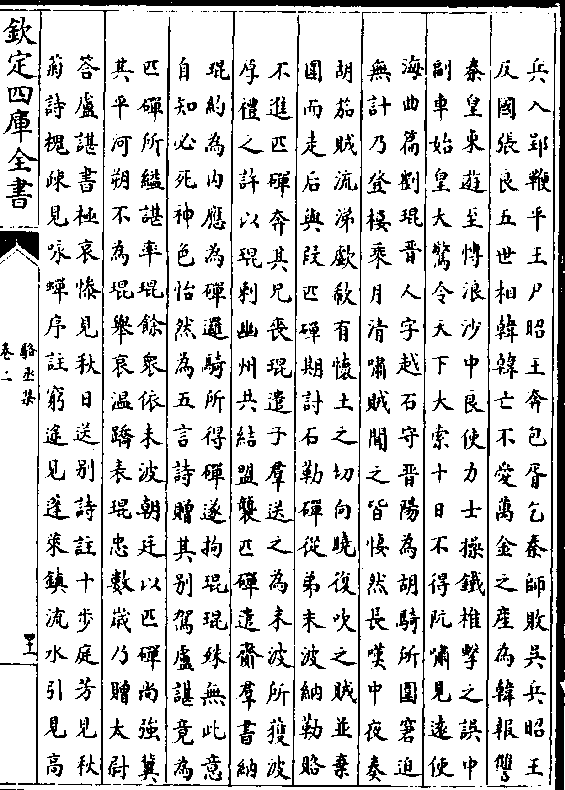 兵入郢鞭平王尸昭王奔包胥乞秦師敗吳兵昭王
反國張良五世相韓韓亡不愛萬金之產為韓報讐
秦皇東遊至愽浪沙中良使力士操鐵椎擊之誤中
副車始皇大驚令天下大索十日不得阮嘯見遠使
海曲篇劉琨晉人字越石守晉陽為胡騎所圍窘迫
無計乃登樓乘月清嘯賊聞之皆悽然長嘆中夜奏
胡笳賊流涕歔欷有懷土之切向曉復吹之賊並棄
圍而走后與段匹磾期討石勒磾從弟末波納勒賂
不進匹磾奔其兄喪琨遣子羣送之為末波所獲波
厚禮之許以琨刺幽州共結盟襲匹磾遣齎羣書納
琨約為内應為磾邏騎所得磾遂拘琨琨殊無此意
自知必死神色怡然為五言詩贈其别駕盧諶竟為
匹磾所縊諶率琨餘衆依末波朝廷以匹磾尚強冀
其平河朔不為琨舉哀温蹻表琨忠數嵗乃贈太尉
答盧諶書極哀慘見秋日送别詩註十步庭芳見秋
菊詩槐疎見咏蟬序註窮途見蓬萊鎮流水引見高
欽定四庫全書
駱丞集
卷二